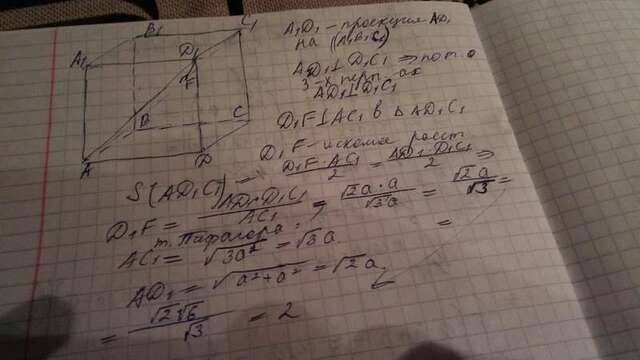 B₁ C₁
A₁ D₁
F
B C
A D
A₁D₁ - проекция AD₁
на (A₁B₁C₁)
A₁D₁⊥D₁C₁ ⇒ по т. о
3-х перп-ах
AD₁⊥D₁C₁
D₁F⊥AC₁ в △AD₁C₁
D₁F - искомое расст
S(AD₁C₁) = D₁F·AC₁/2 = AD₁·D₁C₁/2 ⇒
D₁F = AD₁·D₁C₁/AC₁ = √2a·a/√3a = √2a/√3 =
т. Пифагора:
AC₁ = √3a² = √3a
AD₁ = √a²+a² = √2a
= √2·√6/√3 = 2